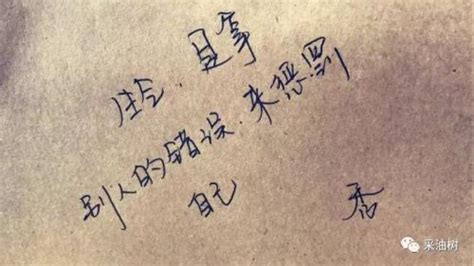 生气.是拿
别人的错误.来惩罚
自己
香
采油树